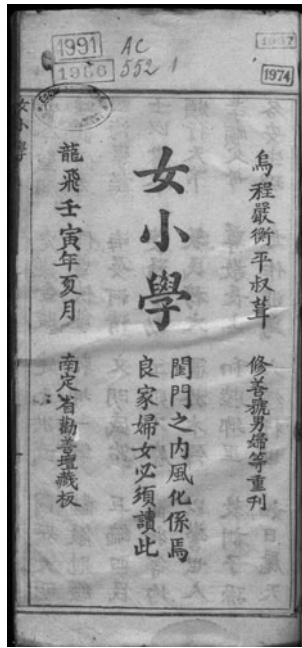 1991
AC
552
1
1986
1937
1974
烏程嚴衡平叔葺
修善號男婦等重刊
女小學
閨門之内風化係焉
良家婦女必須讀此
龍飛壬寅年亥月
南定省勸善壇藏板
女小學